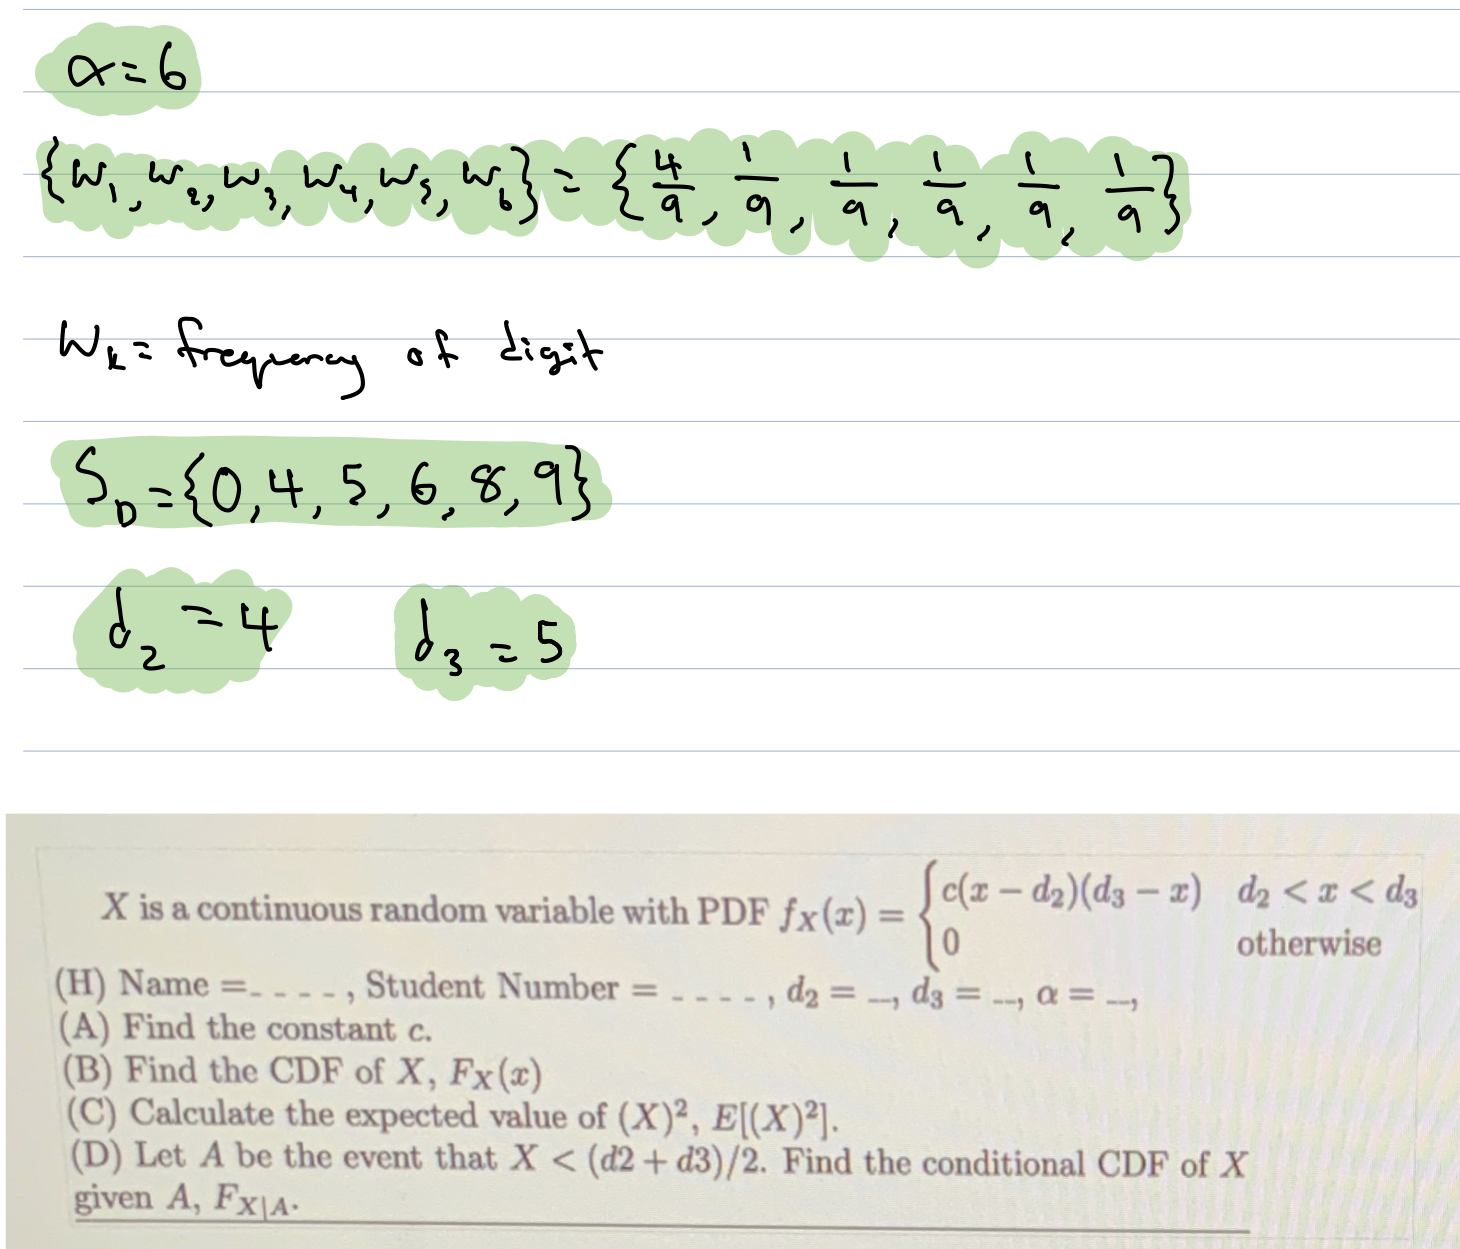 α=6
{W₁, W₂, W₃, W₄, W₅, W₆} = {4/9, 1/9, 1/9, 1/9, 1/9, 1/9}
Wₖ= frequency of digit
S_D={0,4,5,6,8,9}
d₂=4 d₃=5
X is a continuous random variable with PDF f_X(x) = { c(x − d₂)(d₃ − x) d₂ < x < d₃
0 otherwise
(H) Name =_ _ _ _ , Student Number = _ _ _ _ , d₂ = __, d₃ = __, α = __,
(A) Find the constant c.
(B) Find the CDF of X, F_X(x)
(C) Calculate the expected value of (X)², E[(X)²].
(D) Let A be the event that X < (d2 + d3)/2. Find the conditional CDF of X
given A, F_{X|A}.